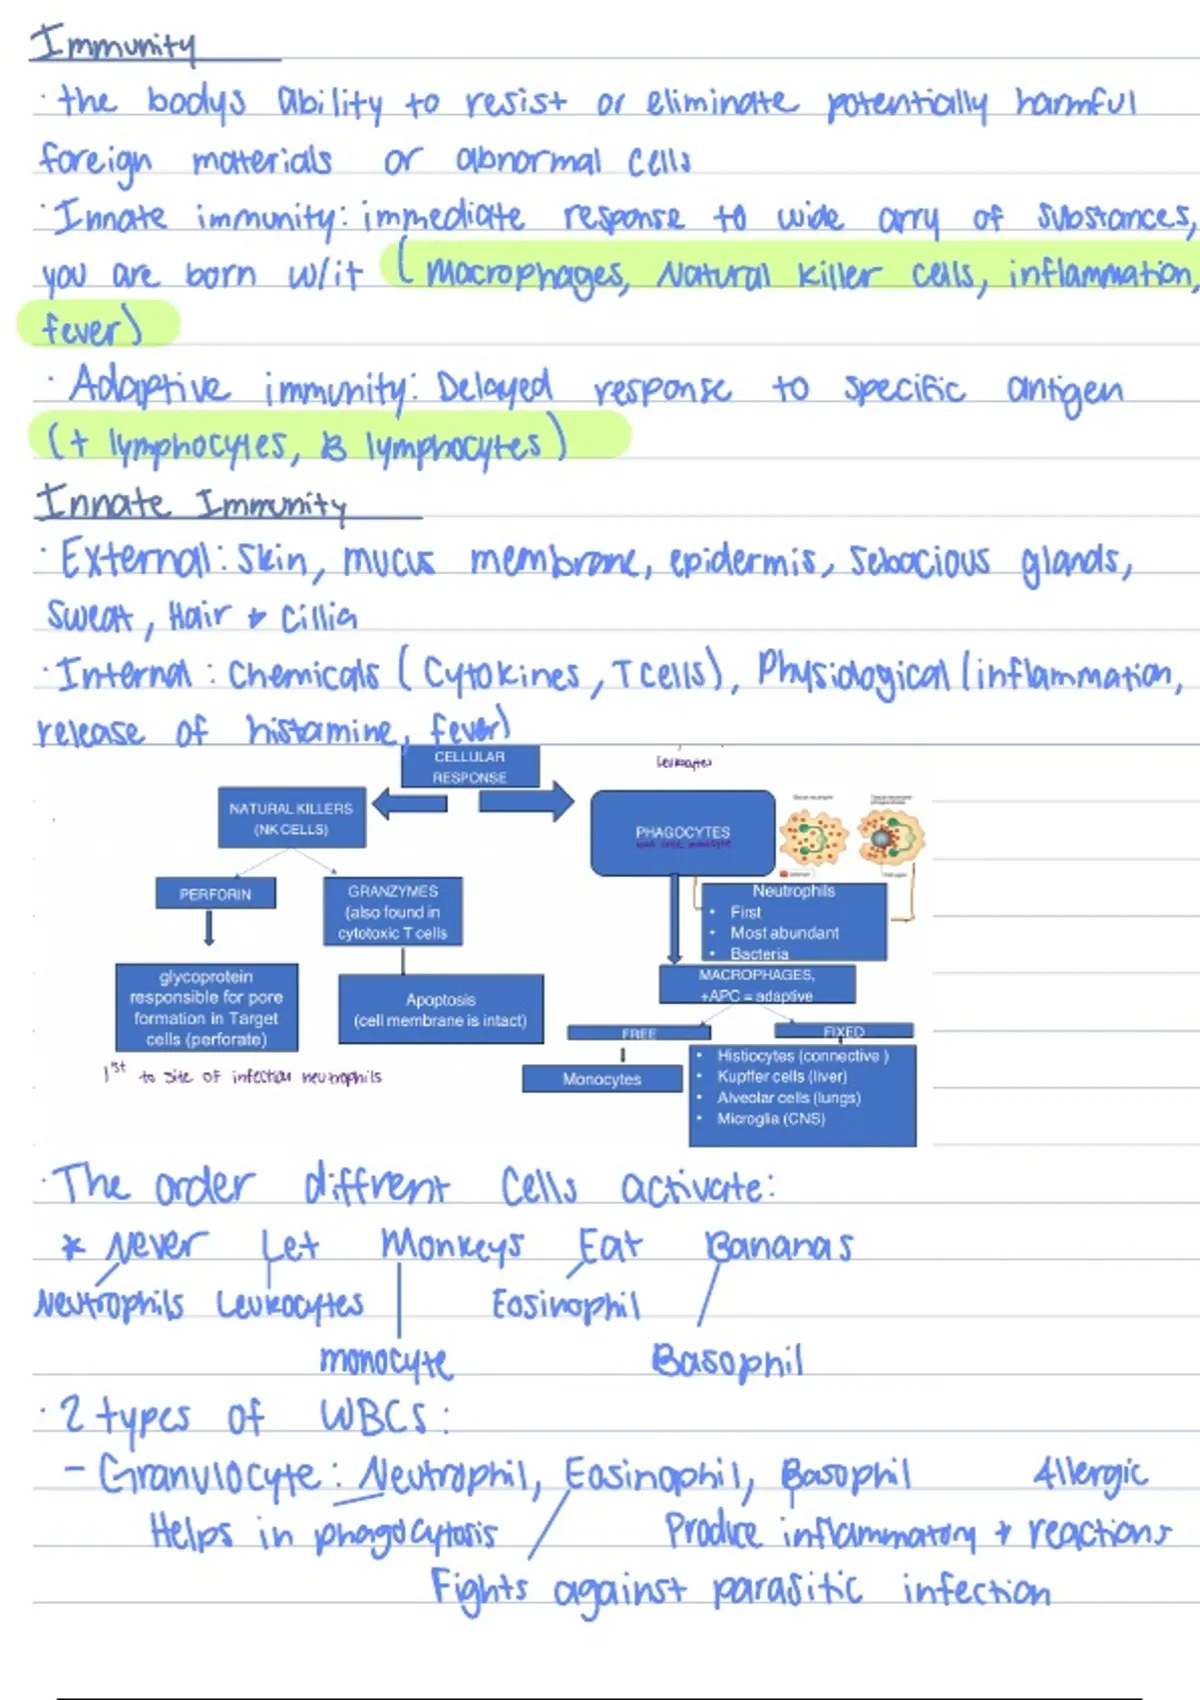 Immunity
· the bodys ability to resist or eliminate potentially harmful
foreign materials or abnormal cells
· Innate immunity: immediate response to wide arry of substances,
you are born w/it (Macrophages, Natural Killer cells, inflammation,
fever)
· Adaptive immunity: Delayed response to specific antigen
(t lymphocytes, B lymphocytes)
Innate Immunity
· External: Skin, mucus membrane, epidermis, Sebacious glands,
Sweat, Hair & Cillia
· Internal: Chemicals (Cytokines, T cells), Physiological (inflammation,
release of histamine, fever)
CELLULAR
RESPONSE
leukocytes
NATURAL KILLERS
(NK CELLS)
PHAGOCYTES
PERFORIN
GRANZYMES
(also found in
cytotoxic T cells
Neutrophils
• First
• Most abundant
• Bacteria
glycoprotein
responsible for pore
formation in Target
cells (perforate)
Apoptosis
(cell membrane is intact)
MACROPHAGES,
+APC = adaptive
FREE
FIXED
Monocytes
• Histiocytes (connective )
• Kupffer cells (liver)
• Alveolar cells (lungs)
• Microglia (CNS)
1st to site of infection neutrophils
· The order diffrent Cells activate:
* Never Let Monkeys Eat Bananas
Neutrophils Leukocytes Eosinophil
monocyte Basophil
· 2 types of WBCs:
- Granulocyte: Neutrophil, Eosinophil, Basophil Allergic
Helps in phagocytosis Produce inflammatory & reactions
Fights against parasitic infection